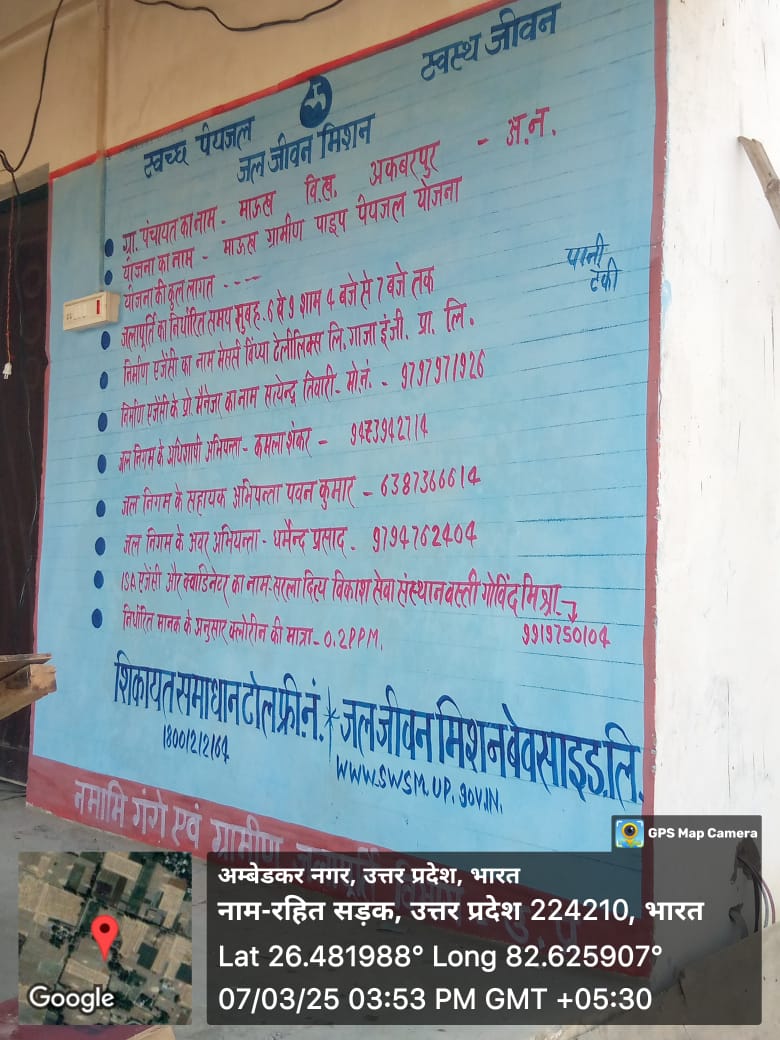 स्वच्छ पेयजल
स्वस्थ जीवन
जल जीवन मिशन
ग्रा. पंचायत का नाम - माऊख वि.ख. अकबरपुर - अ.न.
योजना का नाम - माऊख ग्रामीण पाइप पेयजल योजना
योजना की कुल लागत - - - -
जलापूर्ति का निर्धारित समय सुबह. 6 से 9 शाम 4 बजे से 7 बजे तक
पानी टंकी
निर्माण एजेंसी का नाम मेसर्स विंध्या टेलीलिंक्स लि. गाजा इंजी. प्रा. लि.
निर्माण एजेंसी के प्रो. मैनेजर का नाम सत्येन्द्र तिवारी - मो.नं. - 9797971926
जल निगम के अधिशाषी अभियन्ता - कमला शंकर - 9473942714
जल निगम के सहायक अभियन्ता पवन कुमार - 6387366614
जल निगम के अवर अभियन्ता - धर्मेन्द्र प्रसाद - 9794762404
ISA एजेंसी और क्वाडिनेटर का नाम - सरला दित्य विकाश सेवा संस्थान बस्ती गोविंद मिश्रा
9919750104
निर्धारित मानक के अनुसार क्लोरीन की मात्रा - 0.2PPM.
शिकायत समाधान टोल फ्री. नं. * जल जीवन मिशन बेवसाइड. लि.
18001212164
WWW.SWSM.UP.GOV.IN.
नमामि गंगे एवं ग्रामीण जलापूर्ति विभाग उ. प्र
GPS Map Camera
अम्बेडकर नगर, उत्तर प्रदेश, भारत
नाम-रहित सड़क, उत्तर प्रदेश 224210, भारत
Lat 26.481988° Long 82.625907°
07/03/25 03:53 PM GMT +05:30
Google